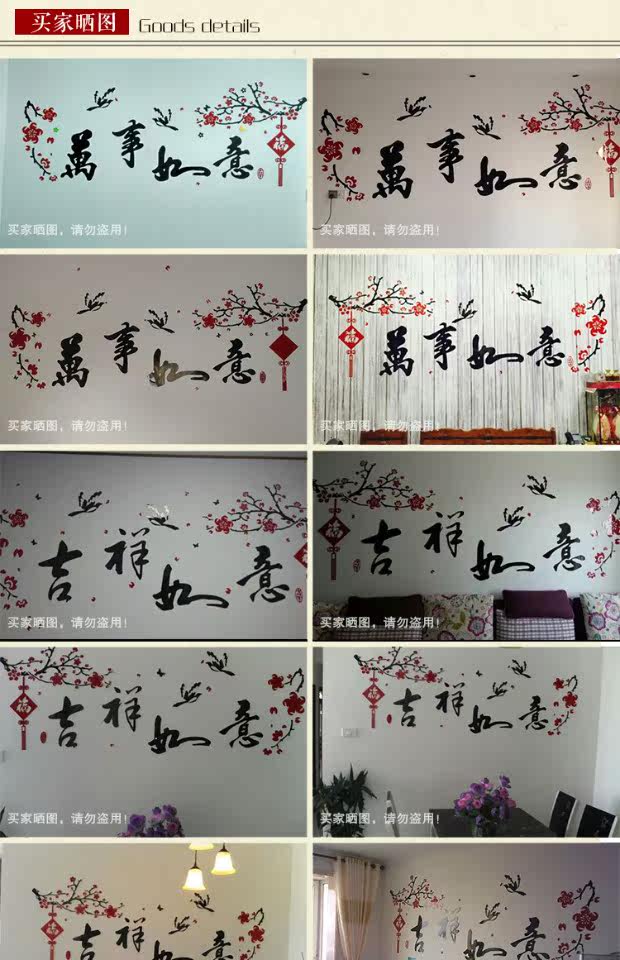 买家晒图 Goods details
萬事如意
福
买家晒图，请勿盗用！
萬事如意
福
买家晒图，请勿盗用！
萬事如意
买家晒图，请勿盗用！
福
萬事如意
买家晒图，请勿盗用！
吉祥如意
买家晒图，请勿盗用！
福
吉祥如意
买家晒图，请勿盗用！
福
吉祥如意
买家晒图，请勿盗用！
福
吉祥如意
买家晒图，请勿盗用！
福
吉祥如意
福
吉祥如意